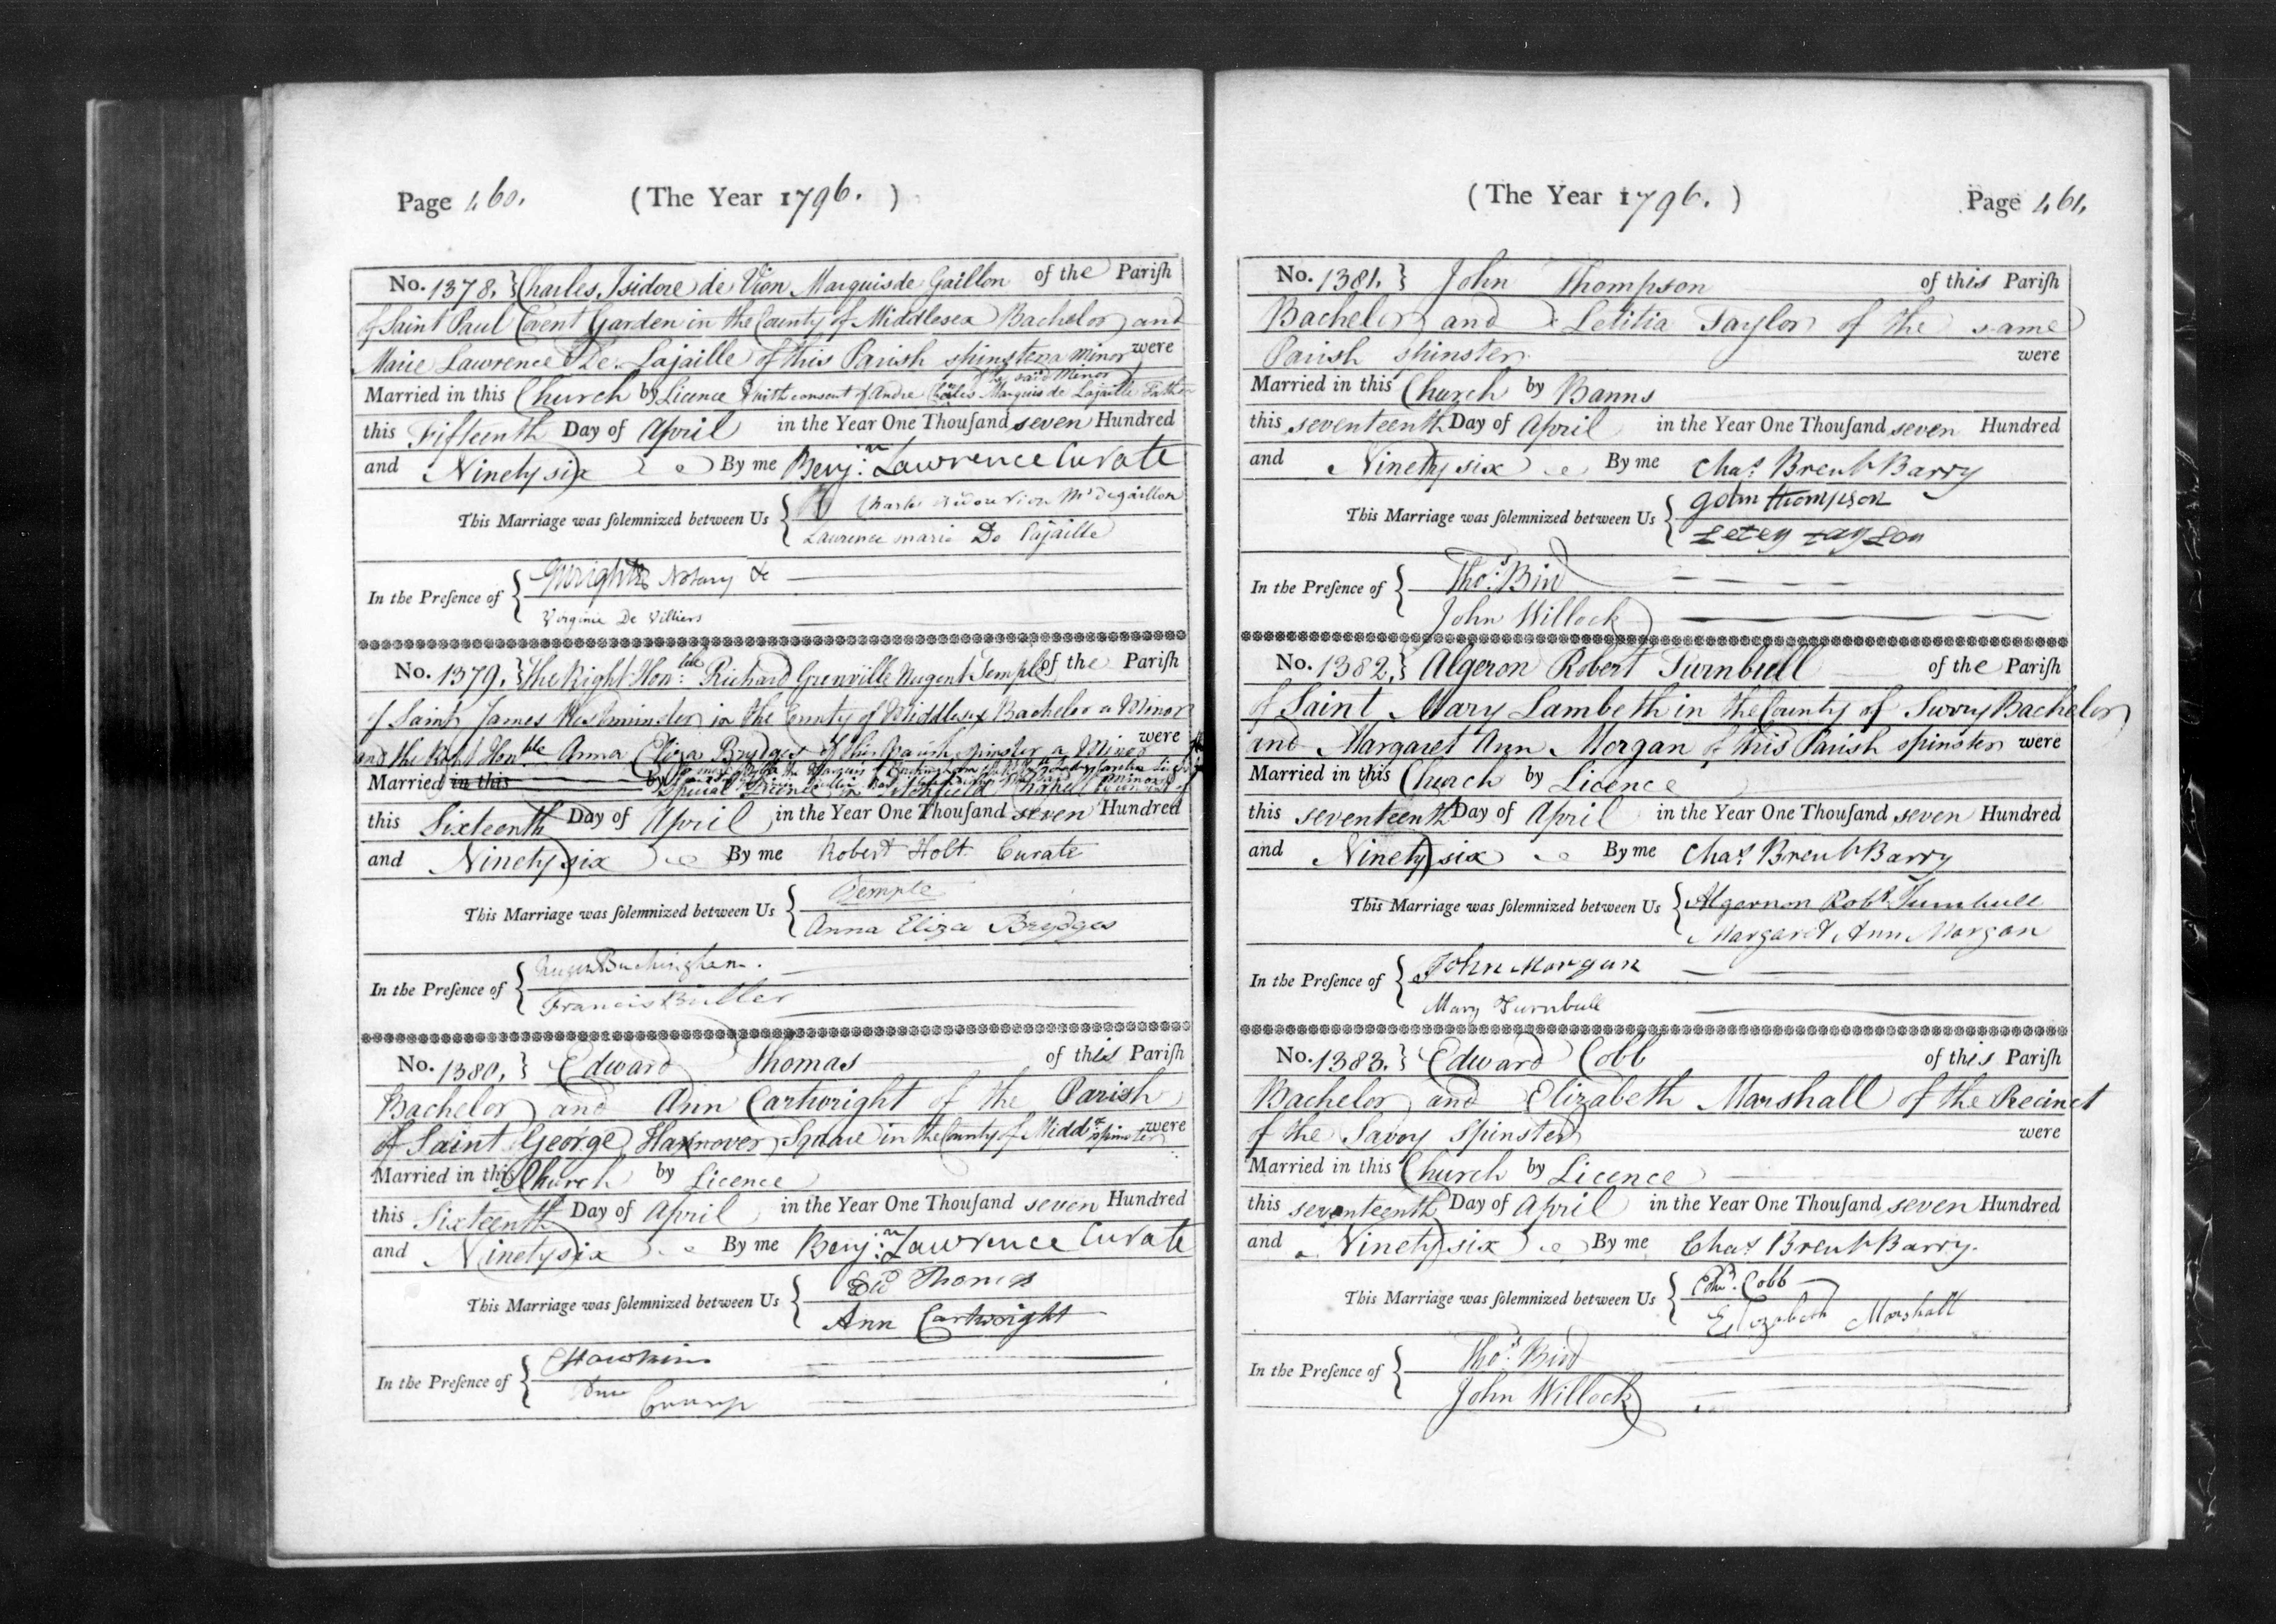 Page 460.
(The Year 1796.)
No. 1378. } Charles Isidore de Vion Marquis de Gaillon of the Parish
of Saint Paul Covent Garden in the County of Middlesex Bachelor and
Marie Lawrence De Lajaille of this Parish spinster a Minor were
of the said Minor
Married in this Church by Licence with consent of Andre Charles Marquis de Lajaille Father
this Fifteenth Day of April in the Year One Thouſand seven Hundred
and Ninety six By me Benj:n Lawrence Curate
This Marriage was ſolemnized between Us { Charles Vion Degaillon
Laurence marie De Lajaille
In the Preſence of { Wright Notary &c
Virginie De Villiers
No. 1379. } The Right Honble: Richard Grenville Nugent Temple of the Parish
of Saint James Westminster in the County of Middlesex Bachelor a Minor
and the Right Honble Anna Eliza Brydges of this Parish spinster a Minor were
the Marquis of Buckingham
Married in this by Special Licence in Chapel
this Sixteenth Day of April in the Year One Thouſand seven Hundred
and Ninety six By me Robert Holt Curate
This Marriage was ſolemnized between Us { Temple
Anna Eliza Brydges
In the Preſence of { Nugent Buckingham.
Francis Butler
No. 1380. } Edward Thomas of this Parish
Bachelor and Ann Cartwright of the Parish
of Saint George Hannover Square in the County of Middx spinster were
Married in this Church by Licence
this Sixteenth Day of April in the Year One Thouſand seven Hundred
and Ninety six By me Benj:n Lawrence Curate
This Marriage was ſolemnized between Us { Ed Thomas
Ann Cartwright
In the Preſence of { Hawkins
(The Year 1796.)
Page 461.
No. 1381. } John Thompson of this Parish
Bachelor and Letitia Taylor of the same
Parish spinster were
Married in this Church by Banns
this seventeenth Day of April in the Year One Thouſand seven Hundred
and Ninety six By me Chas Brent Barry
This Marriage was ſolemnized between Us { John thompson
Letey tayLor
In the Preſence of { Thos: Bird
John Willock
No. 1382. } Algeron Robert Turnbull of the Parish
of Saint Mary Lambeth in the County of Surry Bachelor
and Margaret Ann Morgan of this Parish spinster were
Married in this Church by Licence
this seventeenth Day of April in the Year One Thouſand seven Hundred
and Ninety six By me Chas Brent Barry
This Marriage was ſolemnized between Us { Algernon Robt Turnbull
Margaret Ann Morgan
In the Preſence of { John Morgan
Mary Turnbull
No. 1383. } Edward Cobb of this Parish
Bachelor and Elizabeth Marshall of the Precinct
of the Savoy Spinster were
Married in this Church by Licence
this seventeenth Day of April in the Year One Thouſand seven Hundred
and Ninety six By me Chas Brent Barry.
This Marriage was ſolemnized between Us { Edwd. Cobb
Elizabeth Marshall
In the Preſence of { Thos: Bird
John Willock